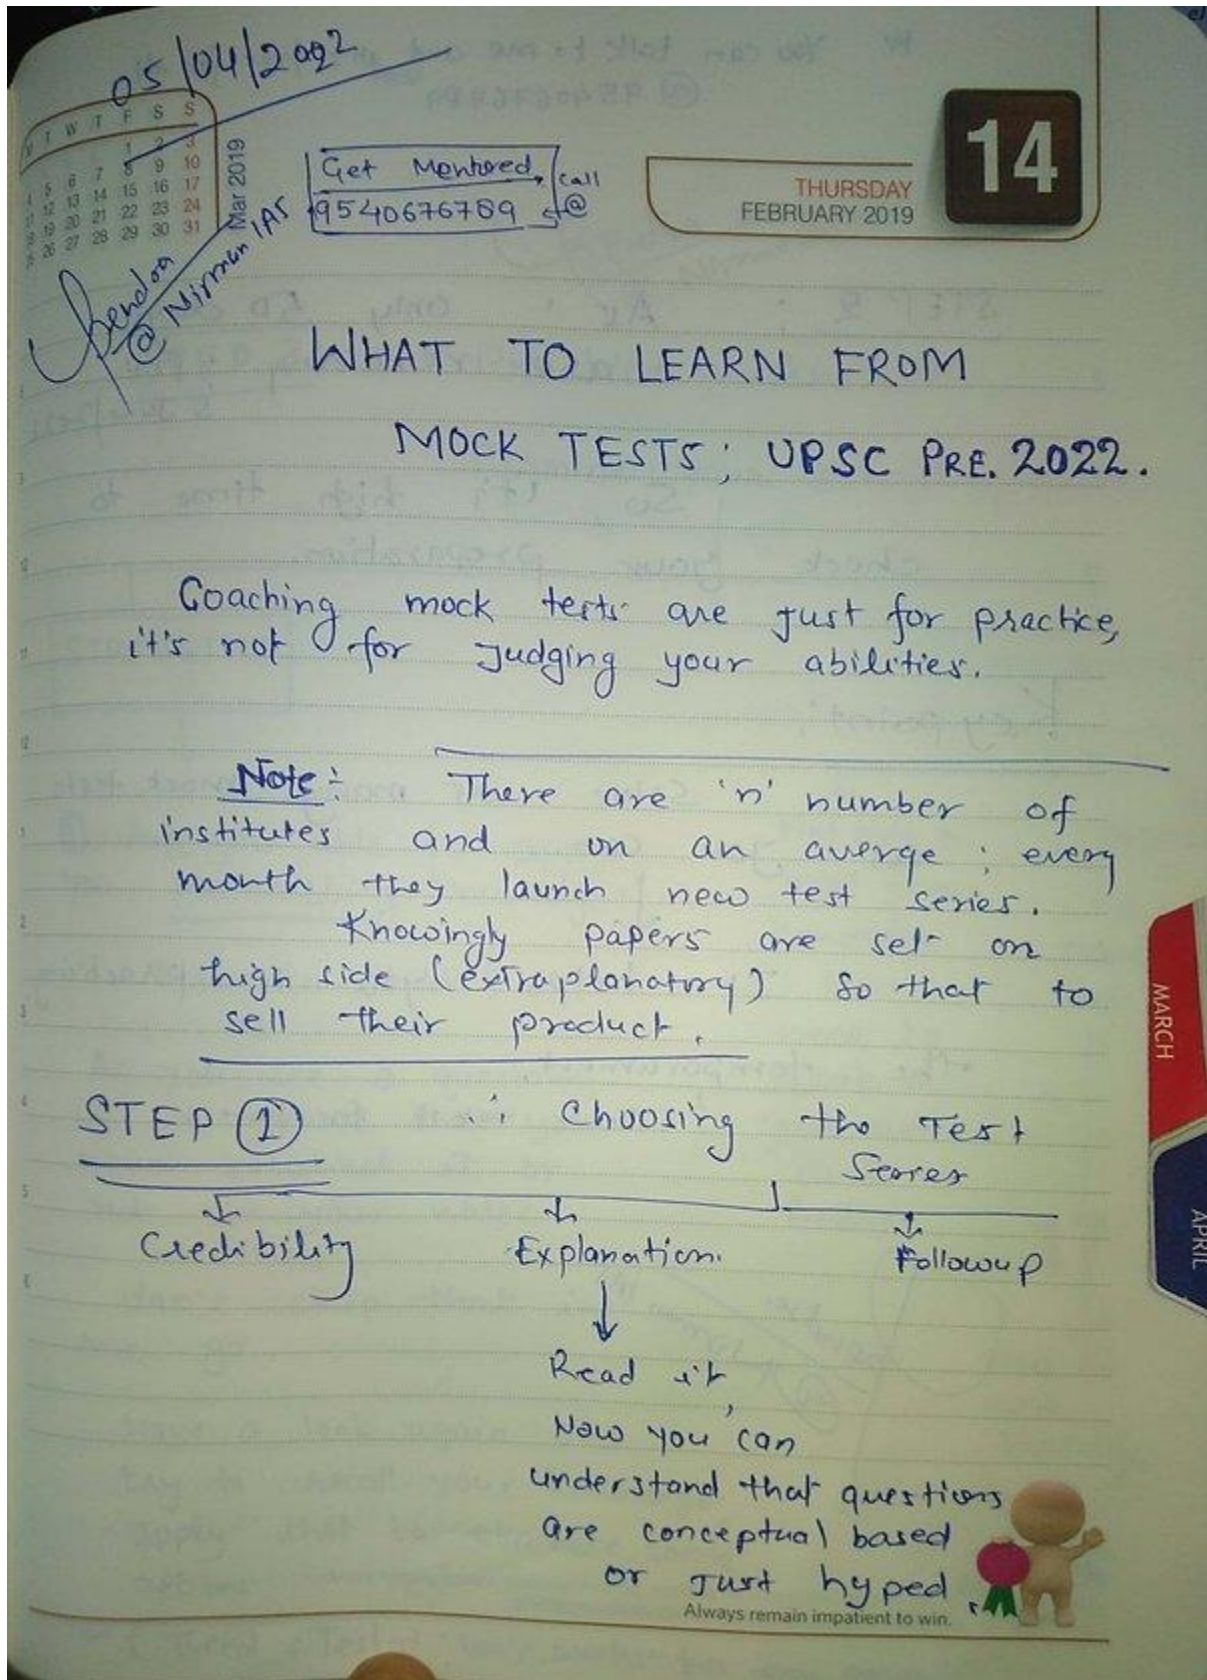 05/04/2022
T W T F S S
1 2 3
4 5 6 7 8 9 10
11 12 13 14 15 16 17
18 19 20 21 22 23 24
25 26 27 28 29 30 31
Mar 2019
Get Mentored, call
9540676789 @
14
THURSDAY
FEBRUARY 2019
@ Nirman IAS
WHAT TO LEARN FROM
MOCK TESTS; UPSC PRE. 2022.
Coaching mock tests are just for practice,
it's not for judging your abilities.
Note:- There are 'n' number of
institutes and on an averge ; every
month they launch new test series.
Knowingly papers are set on
high side (extraplanatory) so that to
sell their product.
STEP 1 :: Choosing the Test
Series
Credibility Explanation. Followup
Read it,
Now you can
understand that questions
are conceptual based
or just hyped.
Always remain impatient to win.
MARCH
APRIL